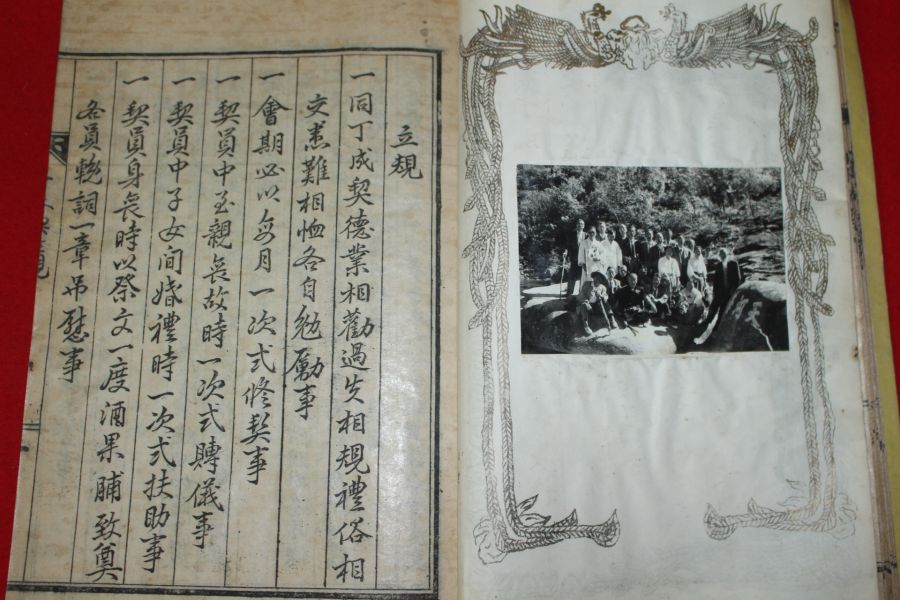 立規
一 同丁成契德業相勸過失相規禮俗相
交患難相恤各自勉勵事
一 會期必以每月一次式修契事
一 契員中至親喪故時一次式賻儀事
一 契員中子女間婚禮時一次式扶助事
一 契員身喪時以祭文一度酒果脯致奠
各員輓詞一章吊慰事